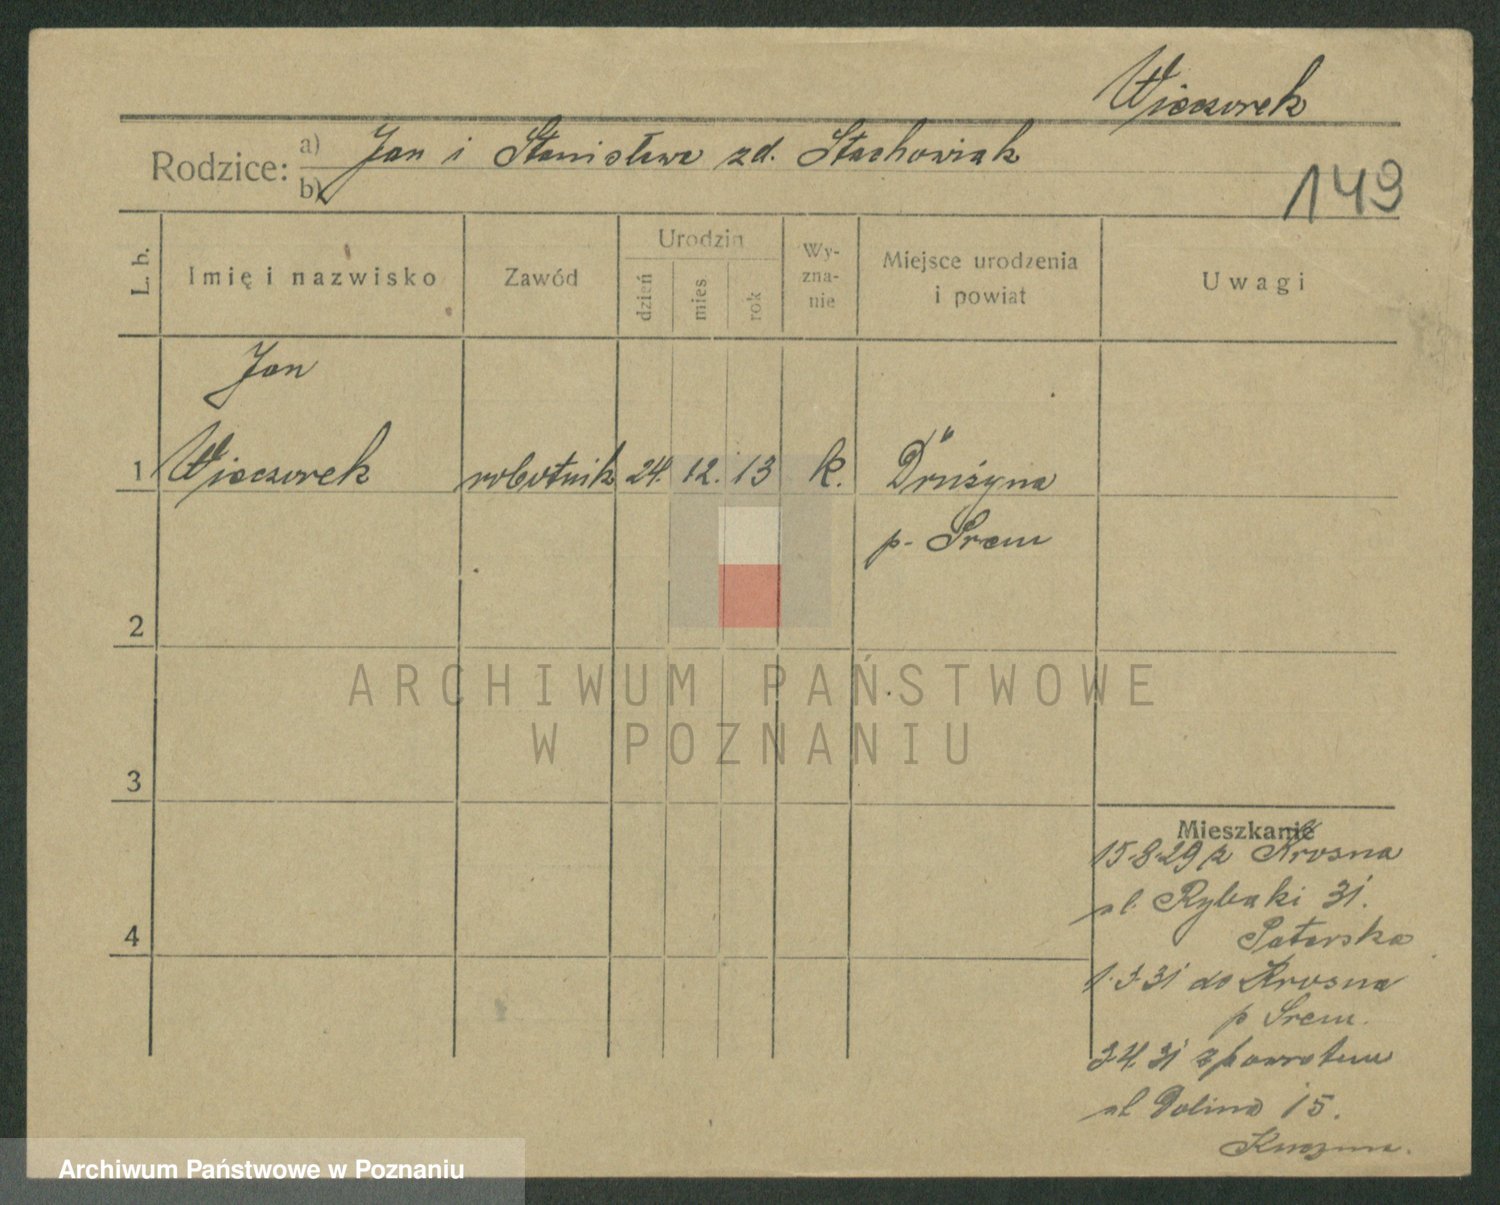 Wieczorek
Rodzice: a) Jan i Stanisława zd. Stachowiak
b)
149
L. b.
Imię i nazwisko
Zawód
Urodzin
dzień
mies
rok
Wy-
zna-
nie
Miejsce urodzenia
i powiat
Uwagi
Jan
1 Wieczorek robotnik 24. 12. 13 k. Drużyna
p. Śrem
2
3
4
Mieszkanie
15.8.29 z Krosna
ul. Rybaki 31.
1.3.31 do Krosna
p Śrem.
3.4.31 z powrotem
ul. Dolina 15.
ARCHIWUM PAŃSTWOWE
W POZNANIU
Archiwum Państwowe w Poznaniu